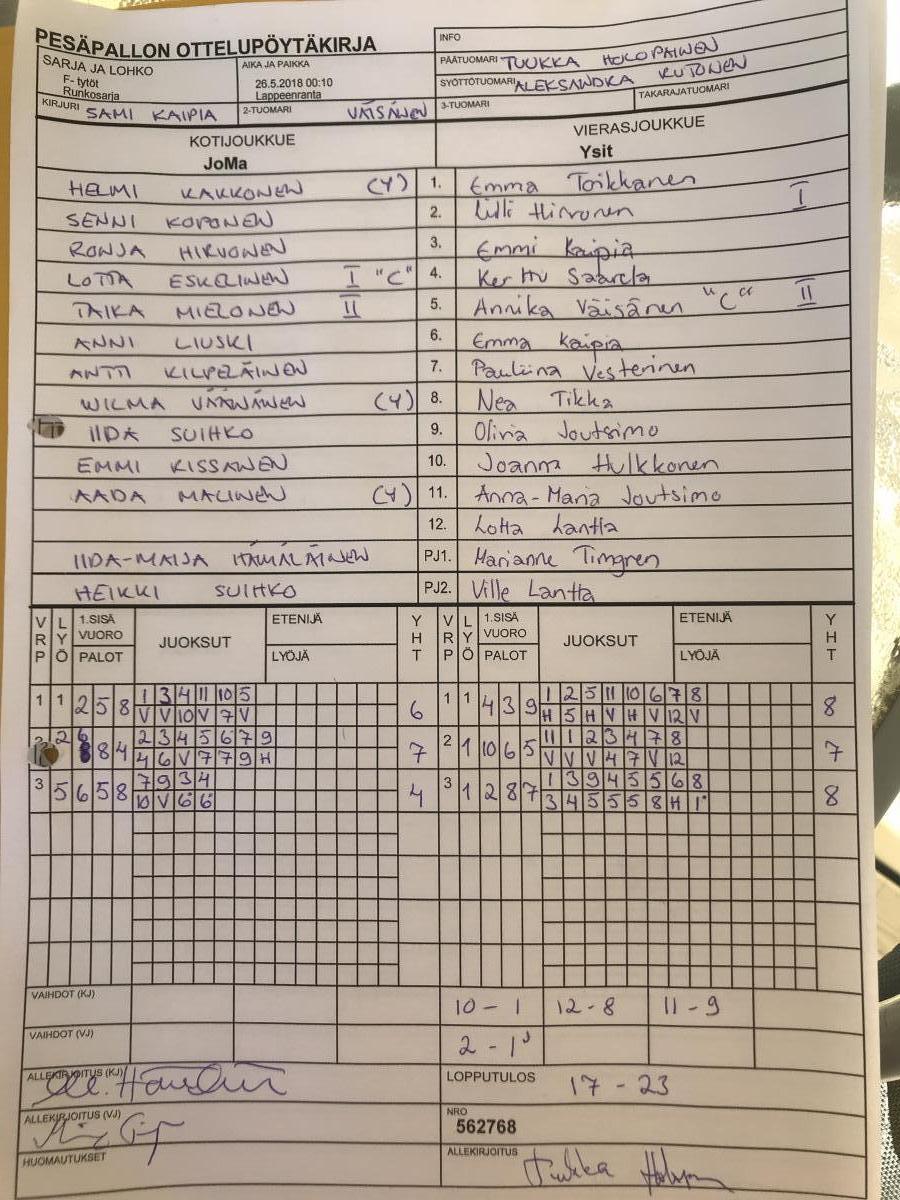 PESÄPALLON OTTELUPÖYTÄKIRJA
INFO
SARJA JA LOHKO
F- tytöt
Runkosarja
AIKA JA PAIKKA
26.5.2018 00:10
Lappeenranta
PÄÄTUOMARI TUUKKA HOLOPAINEN
SYÖTTÖTUOMARI ALEKSANDRA KUTONEN
KIRJURI SAMI KAIPIA
2-TUOMARI VÄISÄNEN
3-TUOMARI
TAKARAJATUOMARI
KOTIJOUKKUE
JoMa
VIERASJOUKKUE
Ysit
HELMI KAKKONEN (Y) 1. Emma Toikkanen
SENNI KOPONEN 2. Lilli Hirvonen I
RONJA HIRVONEN 3. Emmi Kaipia
LOTTA ESKELINEN I "C" 4. Kerttu Saarela
TAIKA MIELONEN II 5. Annika Väisänen "C" II
ANNI LIUSKI 6. Emma Kaipia
ANTTI KILPELÄINEN 7. Pauliina Vesterinen
WILMA VÄÄNÄNEN (Y) 8. Nea Tikka
IIDA SUIHKO 9. Olivia Joutsimo
EMMI KISSANEN 10. Joanna Hulkkonen
AADA MALINEN (Y) 11. Anna-Maria Joutsimo
12. Lotta Lantta
IIDA-MAIJA HÄMÄLÄINEN PJ1. Marianne Timgren
HEIKKI SUIHKO PJ2. Ville Lantta
VRP LYÖ 1.SISÄ VUORO PALOT JUOKSUT ETENIJÄ LYÖJÄ YHT VRP LYÖ 1.SISÄ VUORO PALOT JUOKSUT ETENIJÄ LYÖJÄ YHT
1 1 2 5 8 1 3 4 11 10 5 6 1 1 4 3 9 1 2 5 11 10 6 7 8 8
V V 10 V 7 V H 5 H V H V 12 V
2 6 8 4 2 3 4 5 6 7 9 7 2 1 10 6 5 11 1 2 3 4 7 8 7
4 6 V 7 7 9 H V V V 4 7 V 12
3 5 6 5 8 7 9 3 4 4 3 1 2 8 7 1 3 9 4 5 5 6 8 8
10 V 6 6 3 4 5 5 5 8 H 1
VAIHDOT (KJ) 10 - 1 12 - 8 11 - 9
VAIHDOT (VJ) 2 - 1
ALLEKIRJOITUS (KJ)
LOPPUTULOS 17 - 23
ALLEKIRJOITUS (VJ)
NRO
562768
HUOMAUTUKSET
ALLEKIRJOITUS Tuukka